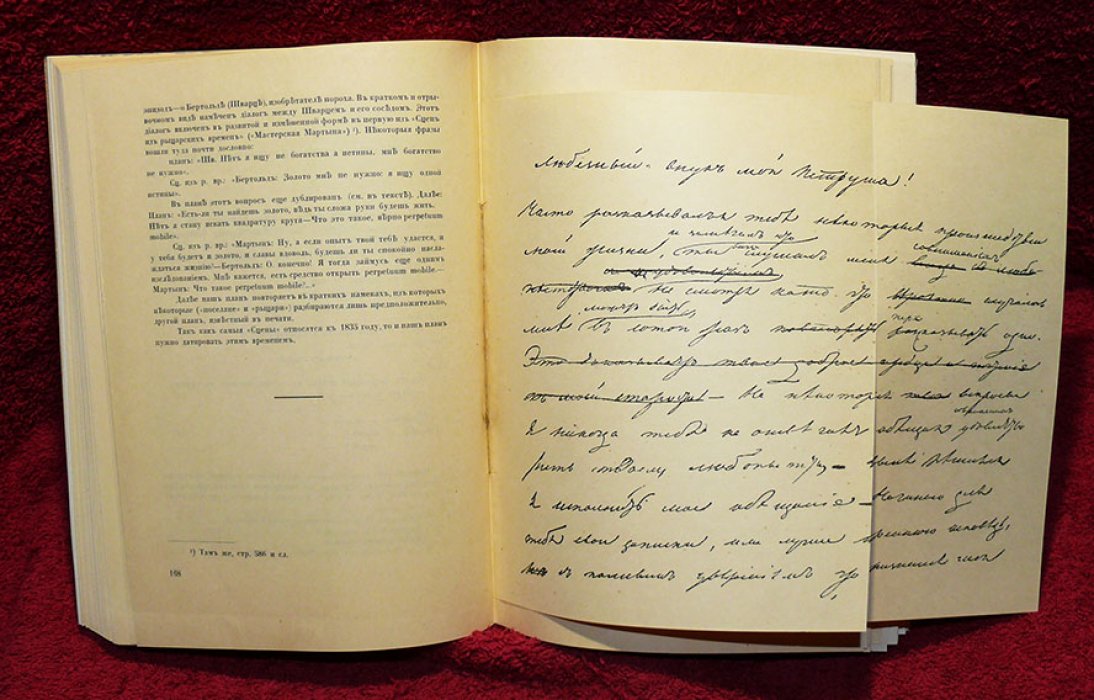 эпизодъ—о Бертольдѣ (Шварцѣ), изобрѣтателѣ пороха. Въ краткомъ и отры-
вочномъ видѣ намѣченъ діалогъ между Шварцемъ и его сосѣдомъ. Этотъ
діалогъ включенъ въ развитой и измѣненной формѣ въ первую изъ «Сценъ
изъ рыцарскихъ временъ» («Мастерская Мартына») ¹). Нѣкоторыя фразы
вошли туда почти дословно:
планъ: «Шв. Нѣтъ я ищу не богатства а истины, мнѣ богатство
не нужно».
Сц. изъ р. вр.: «Бертольдъ: Золото мнѣ не нужно; я ищу одной
истины».
Въ планѣ этотъ вопросъ еще дублированъ (см. въ текстѣ). Далѣе:
Планъ: «Есть-ли ты найдешь золото, вѣдь ты сложа руки будешь жить.
Нѣтъ я стану искать квадратуру круга—Что это такое, вѣрно perpetuum
mobile».
Сц. изъ р. вр.: «Мартынъ: Ну, а если опытъ твой тебѣ удастся, и
у тебя будетъ и золото, и славы вдоволь, будешь ли ты спокойно насла-
ждаться жизнію?—Бертольдъ: О, конечно! Я тогда займусь еще однимъ
изслѣдованіемъ. Мнѣ кажется, есть средство открыть perpetuum mobile.—
Мартынъ: Что такое perpetuum mobile?...»
Далѣе нашъ планъ повторяетъ въ краткихъ намекахъ, изъ которыхъ
нѣкоторые («поселяне» и «рыцари») разбираются лишь предположительно,
другой планъ, извѣстный въ печати.
Такъ какъ самыя «Сцены» относятся къ 1835 году, то и нашъ планъ
нужно датировать этимъ временемъ.
¹) Тамъ же, стр. 586 и сл.
108
Любезный внукъ мой Петруша!
Часто разказывалъ я тебѣ некоторыя происшедствія
моей жизни, и замѣчалъ что ты слушалъ меня со вниманіемъ
не смотря на то, что случалось
мнѣ можетъ быть въ сотой разъ пересказывать одно.
На нѣкоторые вопросы
я никогда тебѣ не отвѣчалъ, обѣщая со временемъ удовлетво
рить твоему любопытству — Нынѣ рѣшился
я исполнить мое обѣщаніе — Начинаю для
тебя свои записки, или лучше исповѣдь,
съ полнымъ увѣреніемъ, что признанія мои